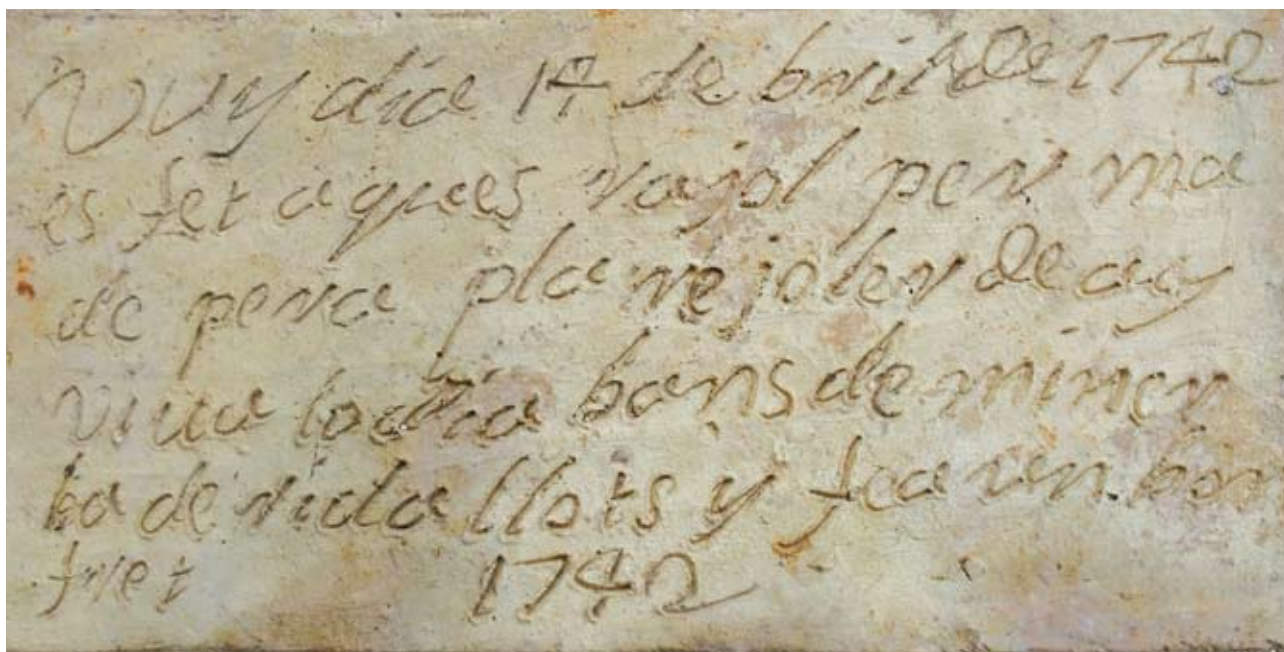 vuy dia 17 de bril de 1742
es fet aques rajol per ma
de pera pla rejoler de assy
viua lo dia bans de miner
ba de vida llots y fea un bon
fret 1742